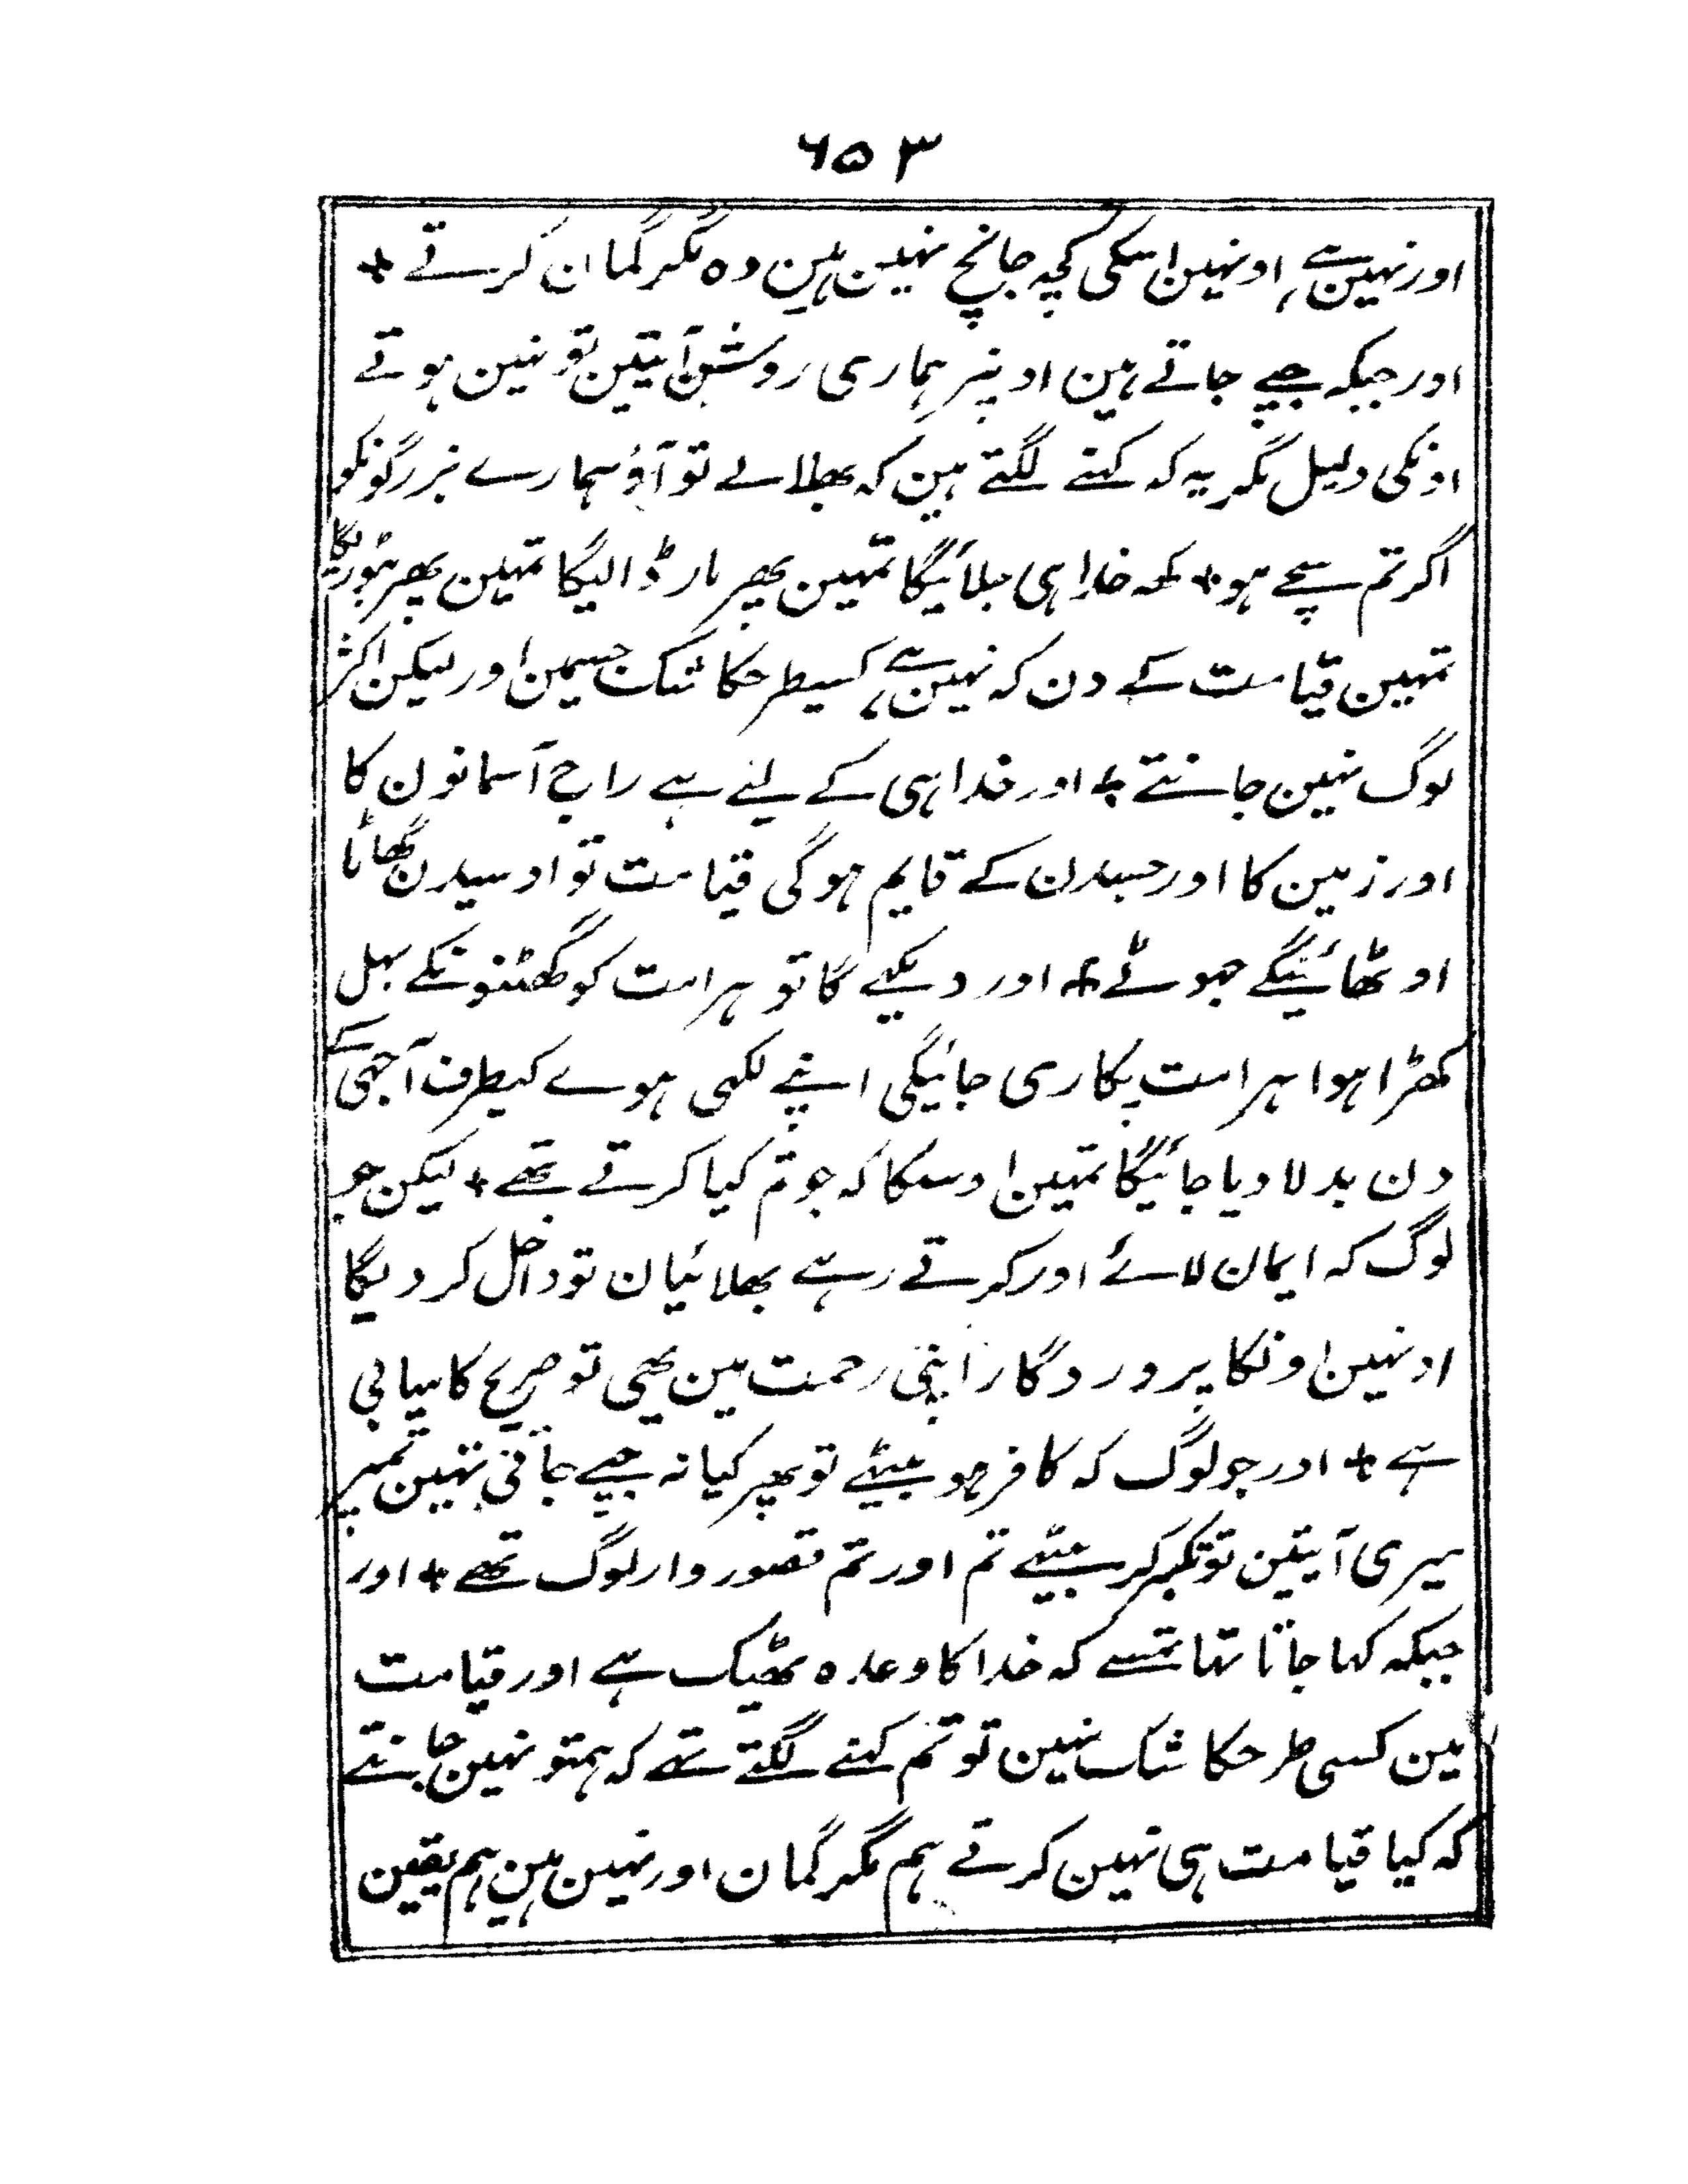 ٦٥٣
اور نہین ہے اونہین اسکی کچہ جانچ نہین ہین وہ مگر گمان کرتے +
اور جبکہ جپے جاتے ہین اونپر ہماری روشن آیتین تو نہین ہوتے
اونکی دلیل مگر یہ کہ کہنے لگتے ہین کہ بھلا لے تو آؤ ہمارے بزرگونکو
اگر تم سچے ہو + کہہ خدا ہی جلائیگا تمہین پھر مار ڈالیگا تمہین پھر بٹوریگا
تمہین قیامت کے دن کہ نہین ہے کسیطرحکا شک جسیمن اور لیکن اکثر
لوگ نہین جانتے + اور خدا ہی کے لیے ہے راج آسمانون کا
اور زمین کا اور جسدن کے قایم ہوگی قیامت تو اوسیدن گھاٹا
اوٹھائینگے جہوٹے + اور دیکہے گا تو ہر امت کو گھٹنونکے بہل
کھڑا ہوا ہر امت پکاری جائیگی اپنے لکہی ہوے کیطرف آجہی کے
دن بدلا دیا جائیگا تمہین اوسکا کہ جو تم کیا کرتے تھے + لیکن جو
لوگ کہ ایمان لائے اور کرتے رہے بھلائیان تو داخل کر دیگا
اونہین اونکا پروردگار اپنی رحمت مین یھی تو صریح کامیابی
ہے + اور جو لوگ کہ کافر ہو بیٹھے تو پھر کیا نہ جپے جاتی تہین تمپر
میری آیتین تو تکبر کر بیٹھے تم اور تم قصور وار لوگ تھے + اور
جبکہ کہا جاتا تہا تمسے کہ خدا کا وعدہ ٹھیک ہے اور قیامت
مین کسی طرحکا شک نہین تو تم کہنے لگتے تہے کہ ہمتو نہین جانتے
کہ کیا قیامت ہی نہین کرتے ہم مگر گمان اور نہین ہین ہم یقین